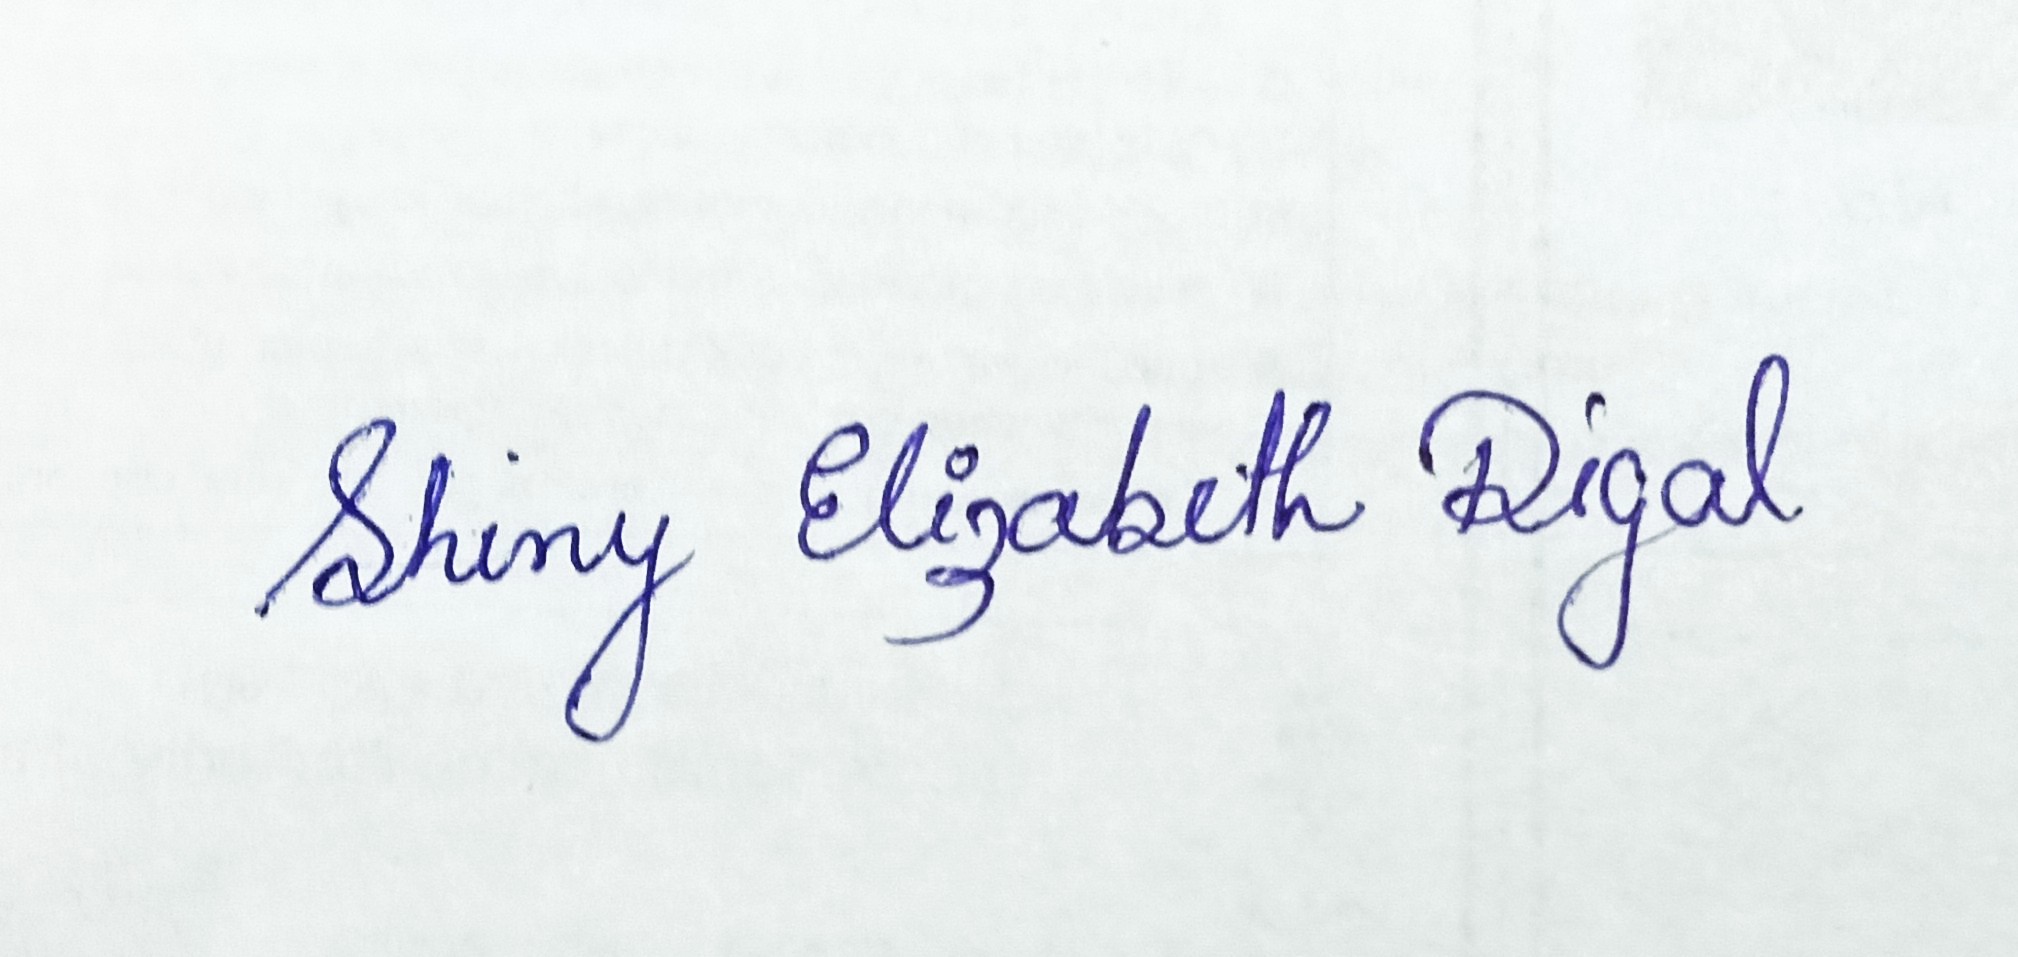 Shiny Elizabeth Rigal